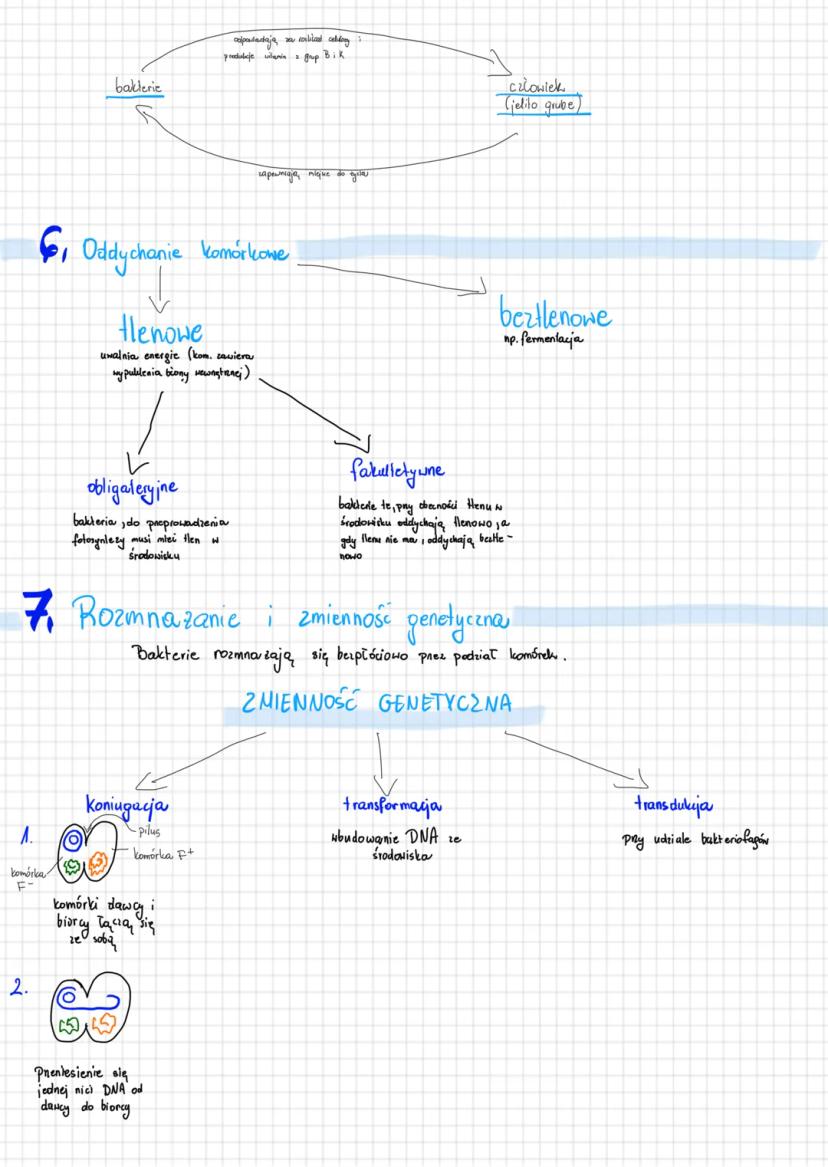 odpowiadają za rozkład celulozy i
produkcje witamin z grup B i K
bakterie
człowiek
(jelito grube)
zapewniają miejsce do życia
6, Oddychanie komórkowe
tlenowe
uwalnia energie (kom. zawiera
wypuklenia błony wewnętrznej)
beztlenowe
np. fermentacja
obligateryjne
bakteria, do przeprowadzenia
fotosyntezy musi mieć tlen w
środowisku
fakultetywne
bakterie te, przy obecności tlenu w
środowisku oddychają tlenowo, a
gdy tlenu nie ma, oddychają beztle-
nowo
7, Rozmnażanie i zmienność genetyczna
Bakterie rozmnażają się bezpłciowo przez podział komórek.
ZMIENNOŚĆ GENETYCZNA
koniugacja
1.
pilus
komórka F+
komórka
F-
komórki dawcy i
biorcy łączą się
ze sobą
2.
Przeniesienie się
jednej nici DNA od
dawcy do biorcy
transformacja
wbudowanie DNA ze
środowiska
transdukcja
przy udziale bakteriofagów